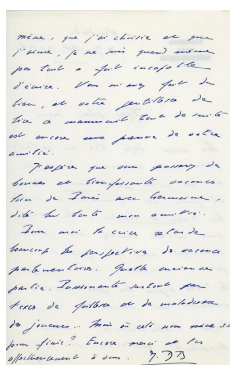 même, que j'ai choisie et que
j'aime, je ne suis quand même
pas tout à fait incapable
d'écrire. Vous m'avez fait du
bien, et votre gentillesse de
lire ce manuscrit tout de suite
est encore une preuve de votre
amitié.
J'espère que vous passerez de
bonnes et bienfaisantes vacances
loin de Paris avec
dites lui toute mon amitié.
Pour moi la crise retarde
beaucoup les perspectives de vacances
parlementaires. Quelle
partie. Passionnante surtout par
de et de maladresse
de joueurs. Mais où cela nous
pour finir? Encore merci et très
affectueusement à vous.